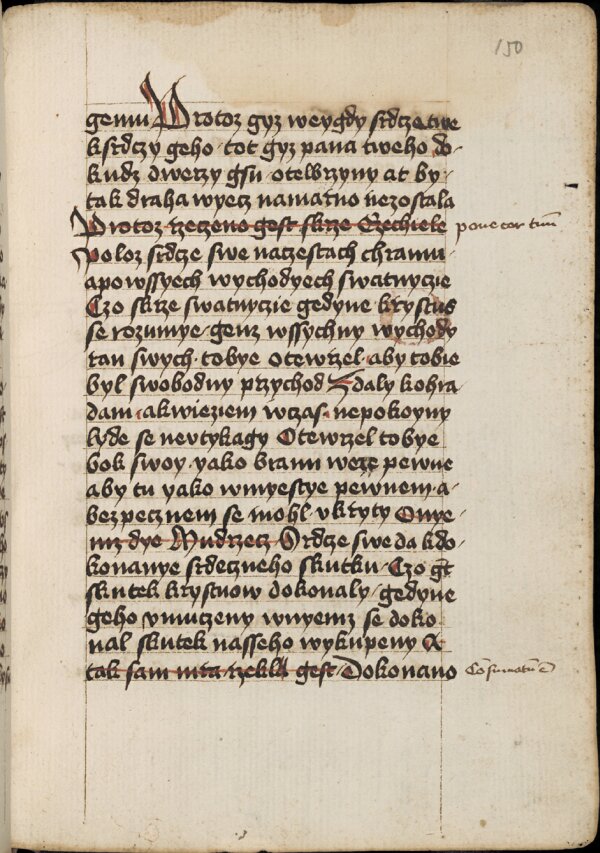 150
gemu Protoz gyz weygdy srdcze twe
k srdczy geho · tot gyz pana tweho do
kudz dwerzy gsu · otewrzyny at by ·
tak draha wyecz namatno nezostala
Protoz rzeczeno gest skrze Ezechiele
pone cor tuum
Poloz srdcze swe naczestach chramu
apowssyech wychodyech swatnyczie
Czo skrze swatnyczie gedyne krystus
se rozumye · genz wssychny wychody
ran swych · tobye otewrzel · aby tobie
byl swobodny przychod Zdaly kohra
dam · akwieziem wczas · nepokoyny
lyde se nevtykagy Otewrzel tobye
bok swoy · yako branu weze pewne
aby tu yako wmyestye pewnem · a ·
bezpecznem se mohl · vkryty Onye ·
mz dye Mudrzecz Srdcze swe da kdo ·
konanye srdeczneho skutku · Czo gt
skutek krystuow dokonaly · gedyne
geho vmuczeny wnyemz se doko
nal skutek nasseho wykupeny A
tak sam rzekl gest · Dokonano
Consumatum e